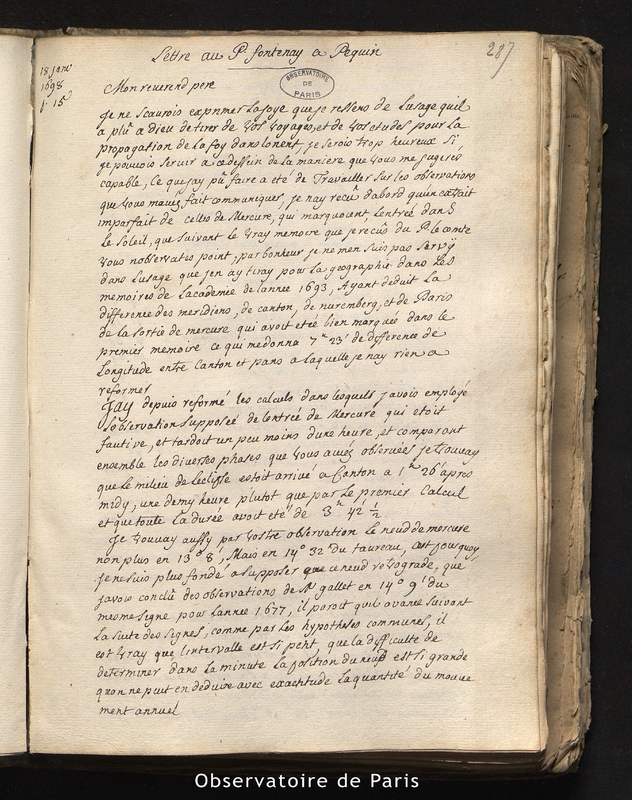 Lettre au P. fontenay a Pequin
287
18 janv
1698
j. 15
OBSERVATOIRE
DE
PARIS
Mon reverend pere
Je ne scaurois exprimer la joye que je ressens de lusage quil
a plu a dieu de tirer de vos voyages, et de vos etudes pour la
propagation de la foy dans lorient, je serois trop heureux si
je pouvois servir a ce dessein de la maniere que vous me jugerés
capable, Ce que jay pû faire a eté de Travailler sur les observations
que vous mavez fait communiquer, je nay receu dabord quun extrait
imparfait de celles de Mercure, qui marquoient lentrée dans
le soleil, que suivant le vray memoire que je recus du P. le comte
vous nobservates point, par bonheur je ne men suis pas servy
dans lusage que jen ay tiray pour la geographie dans les
memoires de lacademie de lannee 1693, Ayant deduit la
difference des meridiens, de canton, de nuremberg, et de Paris
de la sortie de mercure qui avoit eté bien marquée dans le
premier memoire ce qui me donna 7 h 23' de difference de
Longitude entre Canton et paris a laquelle je nay rien a
reformer
Jay depuis reformé les calculs dans lesquels javois employé
lobservation supposeé de lentreé de Mercure qui etoit
fautive, et tardoit un peu moins dune heure, et comparant
ensemble les diverses phases que vous avés observées je trouvay
que le milieu de leclipse estoit arrivé a Canton a 1 h 26' apres
midy, une demy heure plutot que par le premier Calcul
et que toute la durée avoit eté de 3 h 42' ½
Je trouvay aussy par vostre observation le neud de mercure
non plus en 13° 8', Mais en 14° 32' du taureau, cest pourquoy
je ne suis plus fondé a supposer que ce neud retrograde, que
javois conclû des observations de Mr gallet en 14° 9' du
mesme signe pour lannee 1677, il paroit quil avance suivant
la suite des signes, comme par les hypotheses communes, il
est vray que lintervalle est si petit, que la difficulté de
determiner dans la minute la position du neud est si grande
quon ne peut en deduire avec exactitude la quantité du mouve
ment annuel
Observatoire de Paris